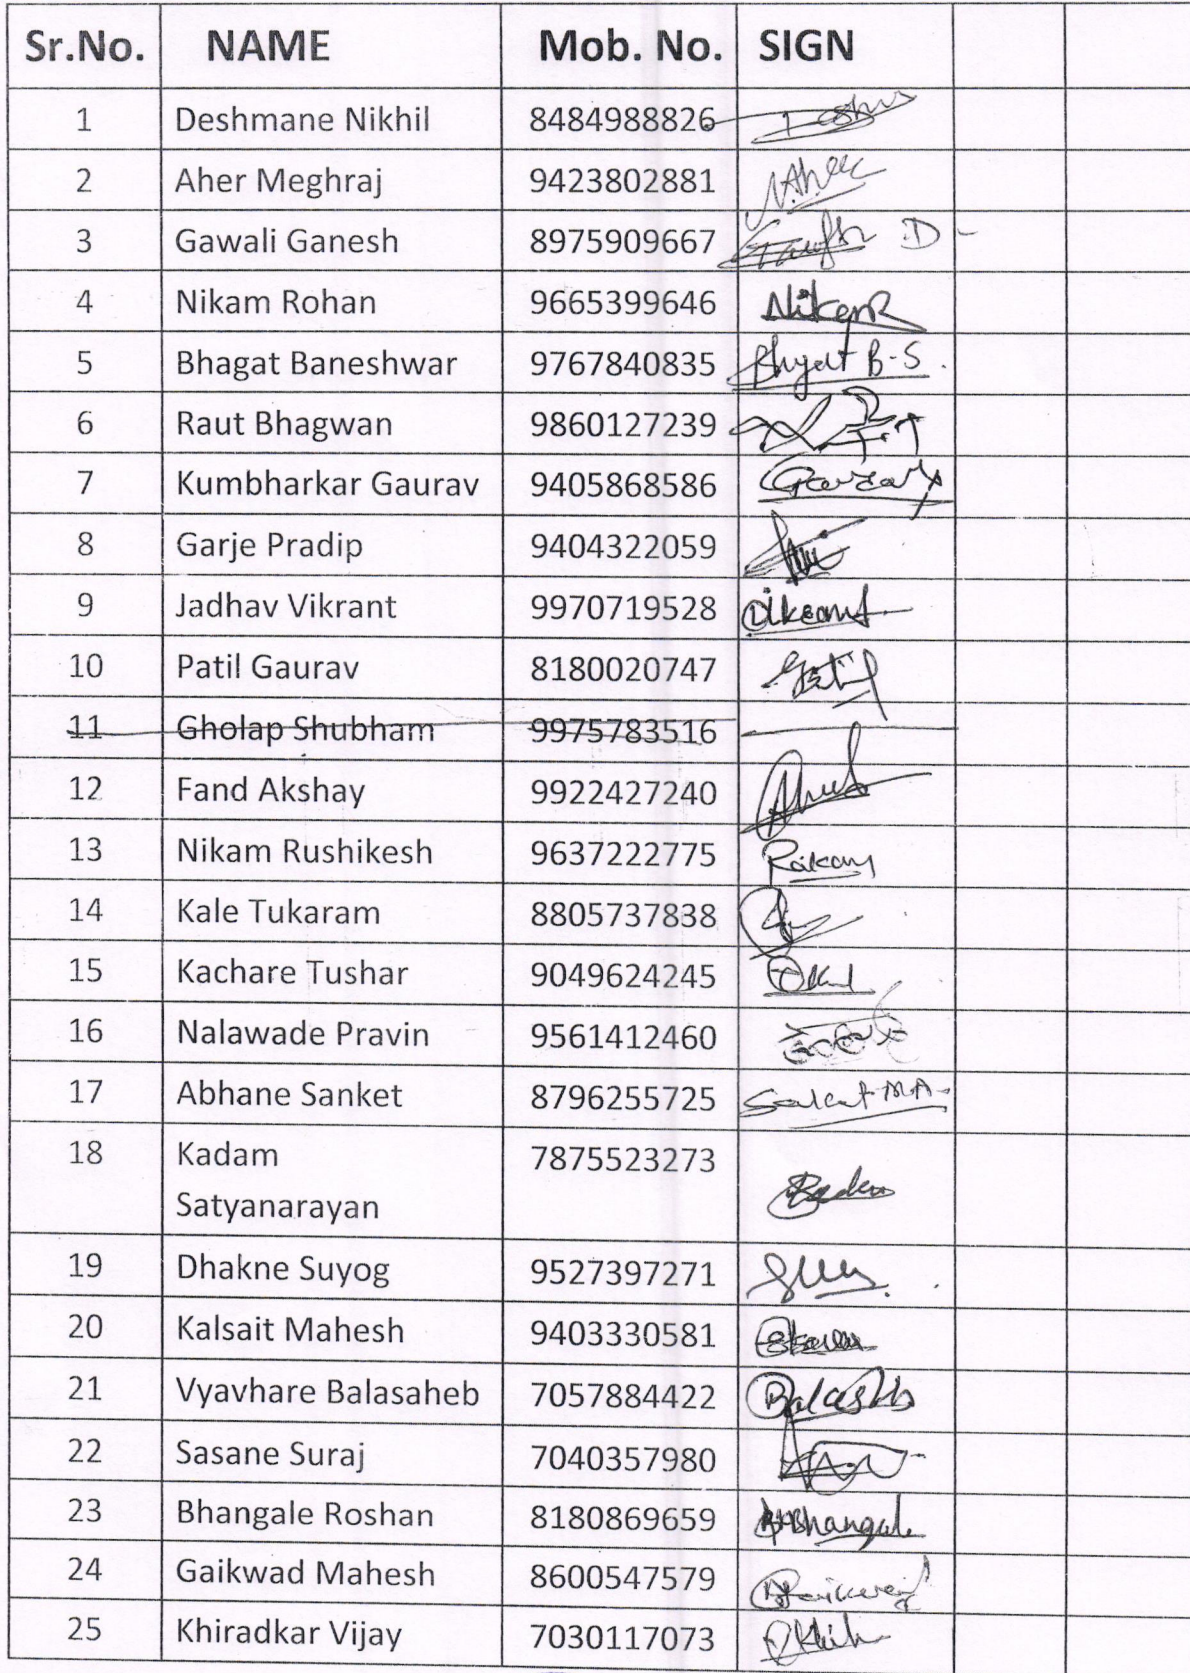 Sr.No. NAME Mob. No. SIGN
1 Deshmane Nikhil 8484988826
2 Aher Meghraj 9423802881
3 Gawali Ganesh 8975909667 D-
4 Nikam Rohan 9665399646
5 Bhagat Baneshwar 9767840835 B-S.
6 Raut Bhagwan 9860127239
7 Kumbharkar Gaurav 9405868586
8 Garje Pradip 9404322059
9 Jadhav Vikrant 9970719528
10 Patil Gaurav 8180020747
11 Gholap Shubham 9975783516
12 Fand Akshay 9922427240
13 Nikam Rushikesh 9637222775
14 Kale Tukaram 8805737838
15 Kachare Tushar 9049624245
16 Nalawade Pravin 9561412460
17 Abhane Sanket 8796255725
18 Kadam 7875523273
Satyanarayan
19 Dhakne Suyog 9527397271
20 Kalsait Mahesh 9403330581
21 Vyavhare Balasaheb 7057884422
22 Sasane Suraj 7040357980
23 Bhangale Roshan 8180869659
24 Gaikwad Mahesh 8600547579
25 Khiradkar Vijay 7030117073